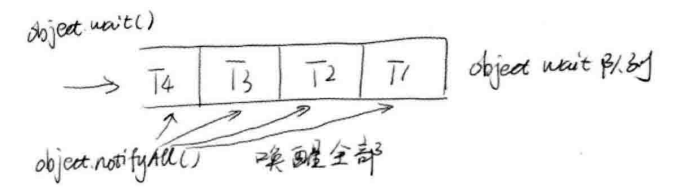 object.wait()
T4 T3 T2 T1 object wait 队列
object.notifyAll() 唤醒全部